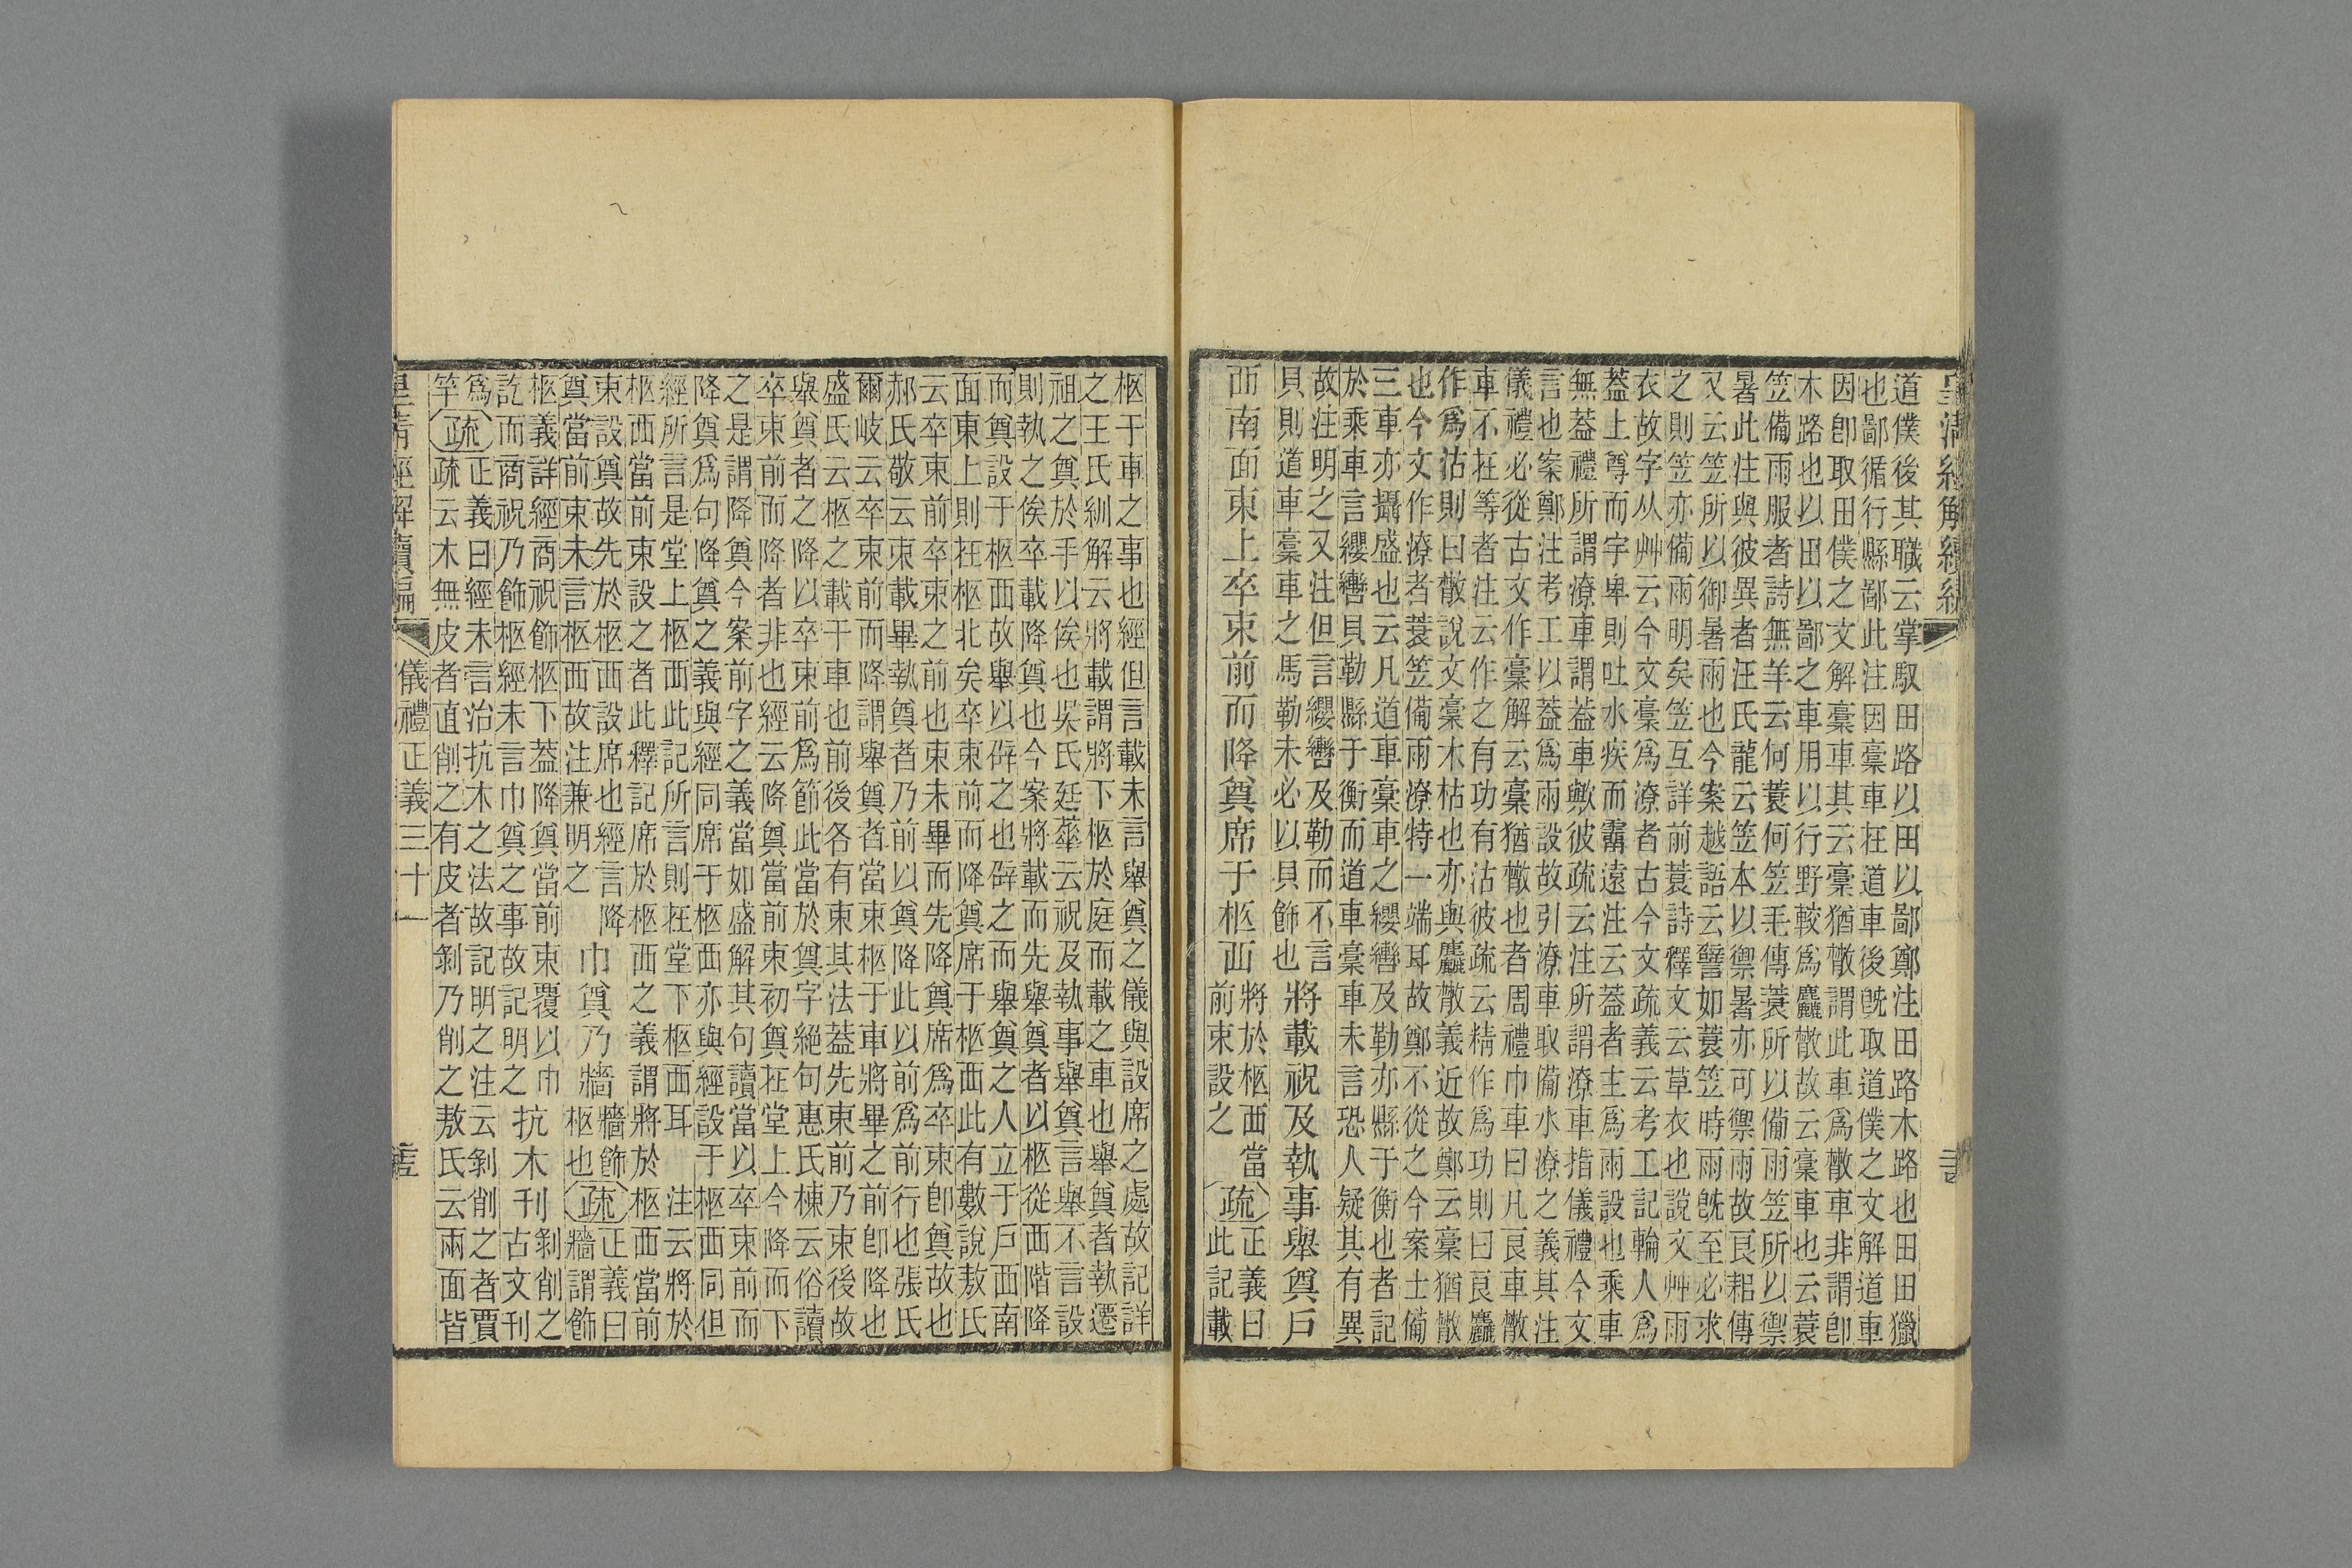 道僕後其職云掌馭田路以田以鄙鄭注田路木路也田田獵
也鄙循行縣鄙此注因稾車在道車後旣取道僕之文解道車
因卽取田僕之文解稾車其云稾猶散謂此車爲散車非謂卽
木路也以田以鄙之車用以行野較爲麤散故云稾車也云蓑
笠備雨服者詩無羊云何蓑何笠毛傳蓑所以備雨笠所以禦
暑此注與彼異者汪氏龍云笠本以禦暑亦可禦雨故良耜傳
又云笠所以御暑雨也今案越語云譬如蓑笠時雨旣至必求
之則笠亦備雨明矣笠互詳前蓑詩釋文云草衣也說文艸雨
衣故字从艸云今文稾爲潦者古今文疏義云考工記輪人爲
蓋上尊而宇卑則吐水疾而霤遠注云蓋者主爲雨設也乘車
無蓋禮所謂潦車謂蓋車歟彼疏云注所謂潦車指儀禮今文
言也案鄭注考工以蓋爲雨設故引潦車取備水潦之義其注
儀禮必從古文作稾解云稾猶散也者周禮巾車曰凡良車散
車不在等者注云作之有功有沽彼疏云精作爲功則曰良麤
作爲沽則曰散說文稾木枯也亦與麤散義近故鄭云稾猶散
也今文作潦者蓑笠備雨潦特一端耳故鄭不從之今案士備
三車亦攝盛也云凡道車稾車之纓轡及勒亦縣于衡也者記
於乘車言纓轡貝勒縣于衡而道車稾車未言恐人疑其有異
故注明之又注但言纓轡及勒而不言
貝則道車稾車之馬勒未必以貝飾也
將載祝及執事舉奠戶
西南面東上卒束前而降奠席于柩西
將於柩西當
前束設之
疏
正義曰
此記載
柩于車之事也經但言載未言舉奠之儀與設席之處故記詳
之王氏紃解云將載謂將下柩於庭而載之車也舉奠者執遷
祖之奠於手以俟也吳氏廷華云祝及執事舉奠言舉不言設
則執之俟卒載降奠也今案將載而先舉奠者以柩從西階降
而奠設于柩西故舉以辟之也辟之而舉奠之人立于戶西南
面東上則在柩北矣卒束前而降奠席于柩西此有數說敖氏
云卒束前卒束之前也束未畢而先降奠席爲卒束卽奠故也
郝氏敬云束載畢執奠者乃前以奠降此以前爲前行也張氏
爾岐云卒束前而降謂舉奠者當束柩于車將畢之前卽降也
盛氏云柩之載于車也前後各有束其法蓋先束前乃束後故
舉奠者之降以卒束前爲節此當於奠字絕句惠氏棟云俗讀
卒束前而降者非也經云降奠當前束初奠在堂上今降而下
之是謂降奠今案前字之義當如盛解其句讀當以卒束前而
降奠爲句降奠之義與經同席于柩西亦與經設于柩西同但
經所言是堂上柩西此記所言則在堂下柩西耳 注云將於
柩西當前束設之者此釋記席於柩西之義謂將於柩西當前
束設奠故先於柩西設席也經言降
奠當前束未言柩西故注兼明之
巾奠乃牆
牆飾
柩也
疏
正義曰
牆謂飾
柩義詳經商祝飾柩下蓋降奠當前束覆以巾
訖而商祝乃飾柩經未言巾奠之事故記明之
抗木刊
剝削之
古文刊
爲
竿
疏
正義曰經未言治抗木之法故記明之注云剝削之者賈
疏云木無皮者直削之有皮者剝乃削之敖氏云兩面皆
儀禮正義三十一